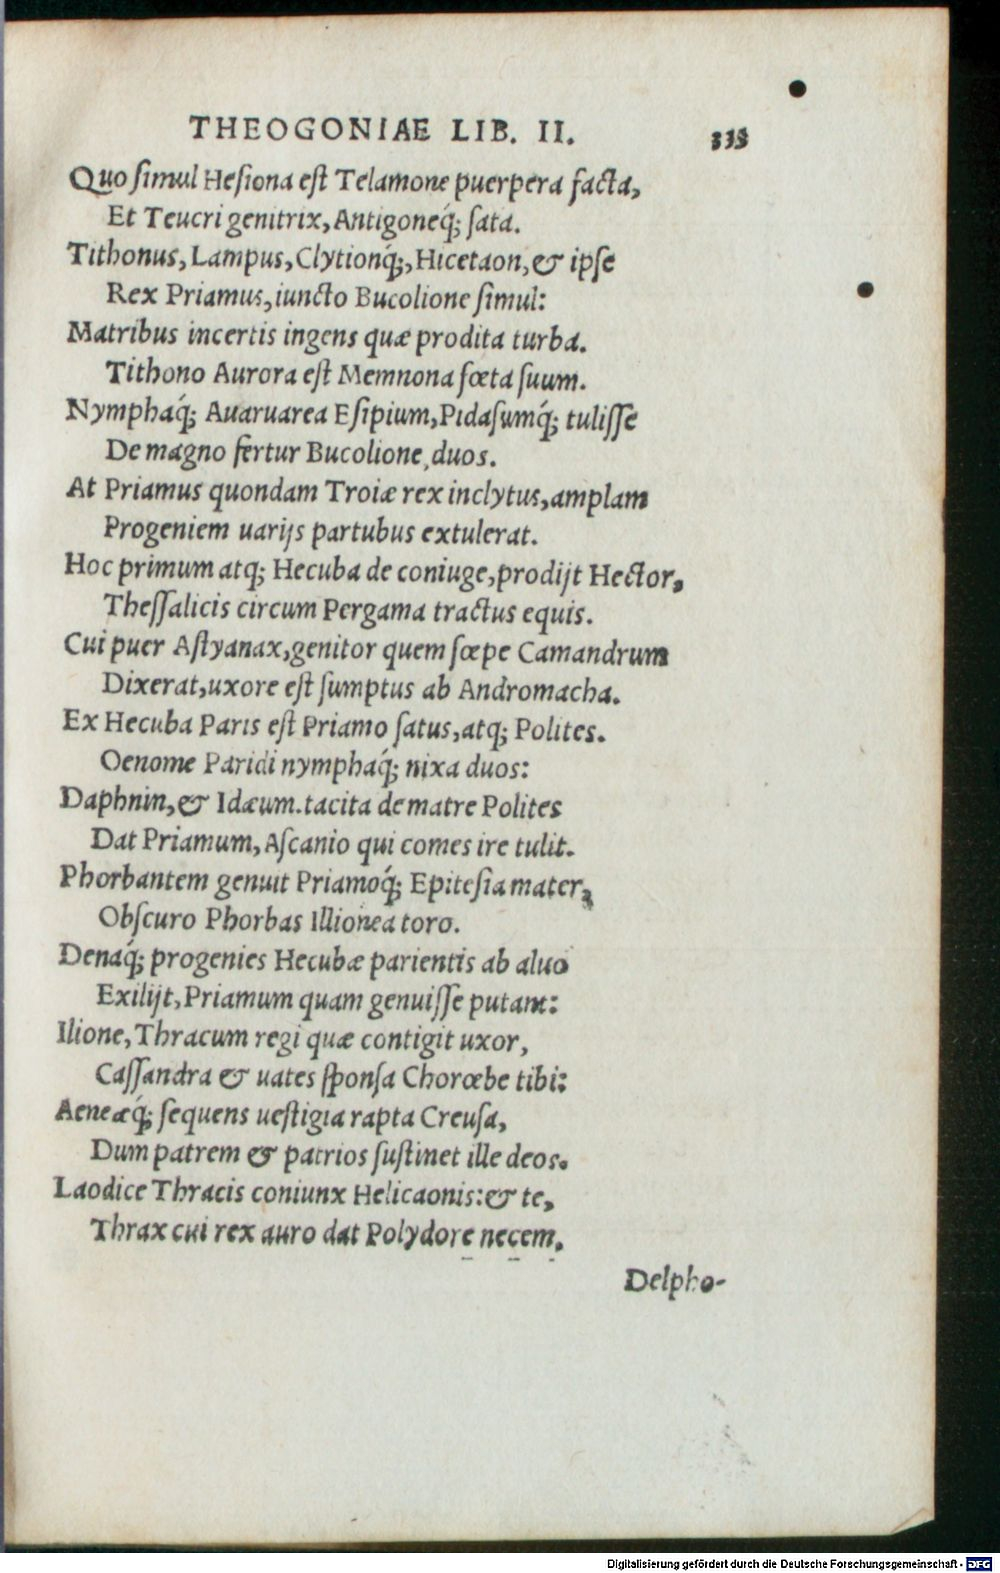 THEOGONIAE LIB. II. 333
Quo simul Hesiona est Telamone puerpera facta,
Et Teucri genitrix, Antigoneq́; sata.
Tithonus, Lampus, Clytionq́;, Hicetaon, & ipse
Rex Priamus, iuncto Bucolione simul:
Matribus incertis ingens quæ prodita turba.
Tithono Aurora est Memnona fœta suum.
Nymphaq́; Auaruarea Esipium, Pidasumq́; tulisse
De magno fertur Bucolione, duos.
At Priamus quondam Troiæ rex inclytus, amplam
Progeniem uarijs partubus extulerat.
Hoc primum atq; Hecuba de coniuge, prodijt Hector,
Thessalicis circum Pergama tractus equis.
Cui puer Astyanax, genitor quem sœpe Camandrum
Dixerat, uxore est sumptus ab Andromacha.
Ex Hecuba Paris est Priamo satus, atq; Polites.
Oenome Paridi nymphaq́; nixa duos:
Daphnin, & Idæum. tacita de matre Polites
Dat Priamum, Ascanio qui comes ire tulit.
Phorbantem genuit Priamoq́; Epitesia mater,
Obscuro Phorbas Illionea toro.
Denaq́; progenies Hecubæ parientis ab aluo
Exilijt, Priamum quam genuisse putant:
Ilione, Thracum regi quæ contigit uxor,
Cassandra & uates sponsa Chorœbe tibi:
Aeneæq́; sequens uestigia rapta Creusa,
Dum patrem & patrios sustinet ille deos.
Laodice Thracis coniunx Helicaonis: & te,
Thrax cui rex auro dat Polydore necem.
Delpho-
Digitalisierung gefördert durch die Deutsche Forschungsgemeinschaft - DFG